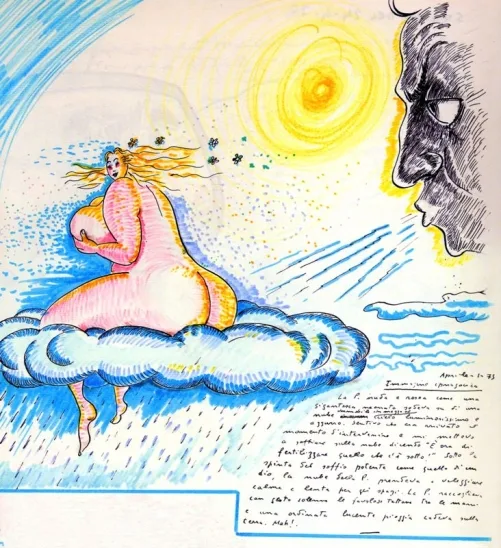 Aprile 1973
Immagine ipnagogica
La P. nuda e rosea come una
gigantesca seduta su di una
nube luminosissimo e
azzurro. Sentivo che era arrivato il
momento d'intervenire e mi mettevo
a soffiare sulla nube dicendo "È ora di
fertilizzare quello che c'è sotto!" Sotto la
spinta del soffio potente come quello di un
dio, la nube della P. prendeva a veleggiare
calma e lenta per gli spazi. La P. raccoglieva
con gesto solenne le favolose tettone tra le mani
e una ordinata lucente pioggia cadeva sulla
terra. Mah!